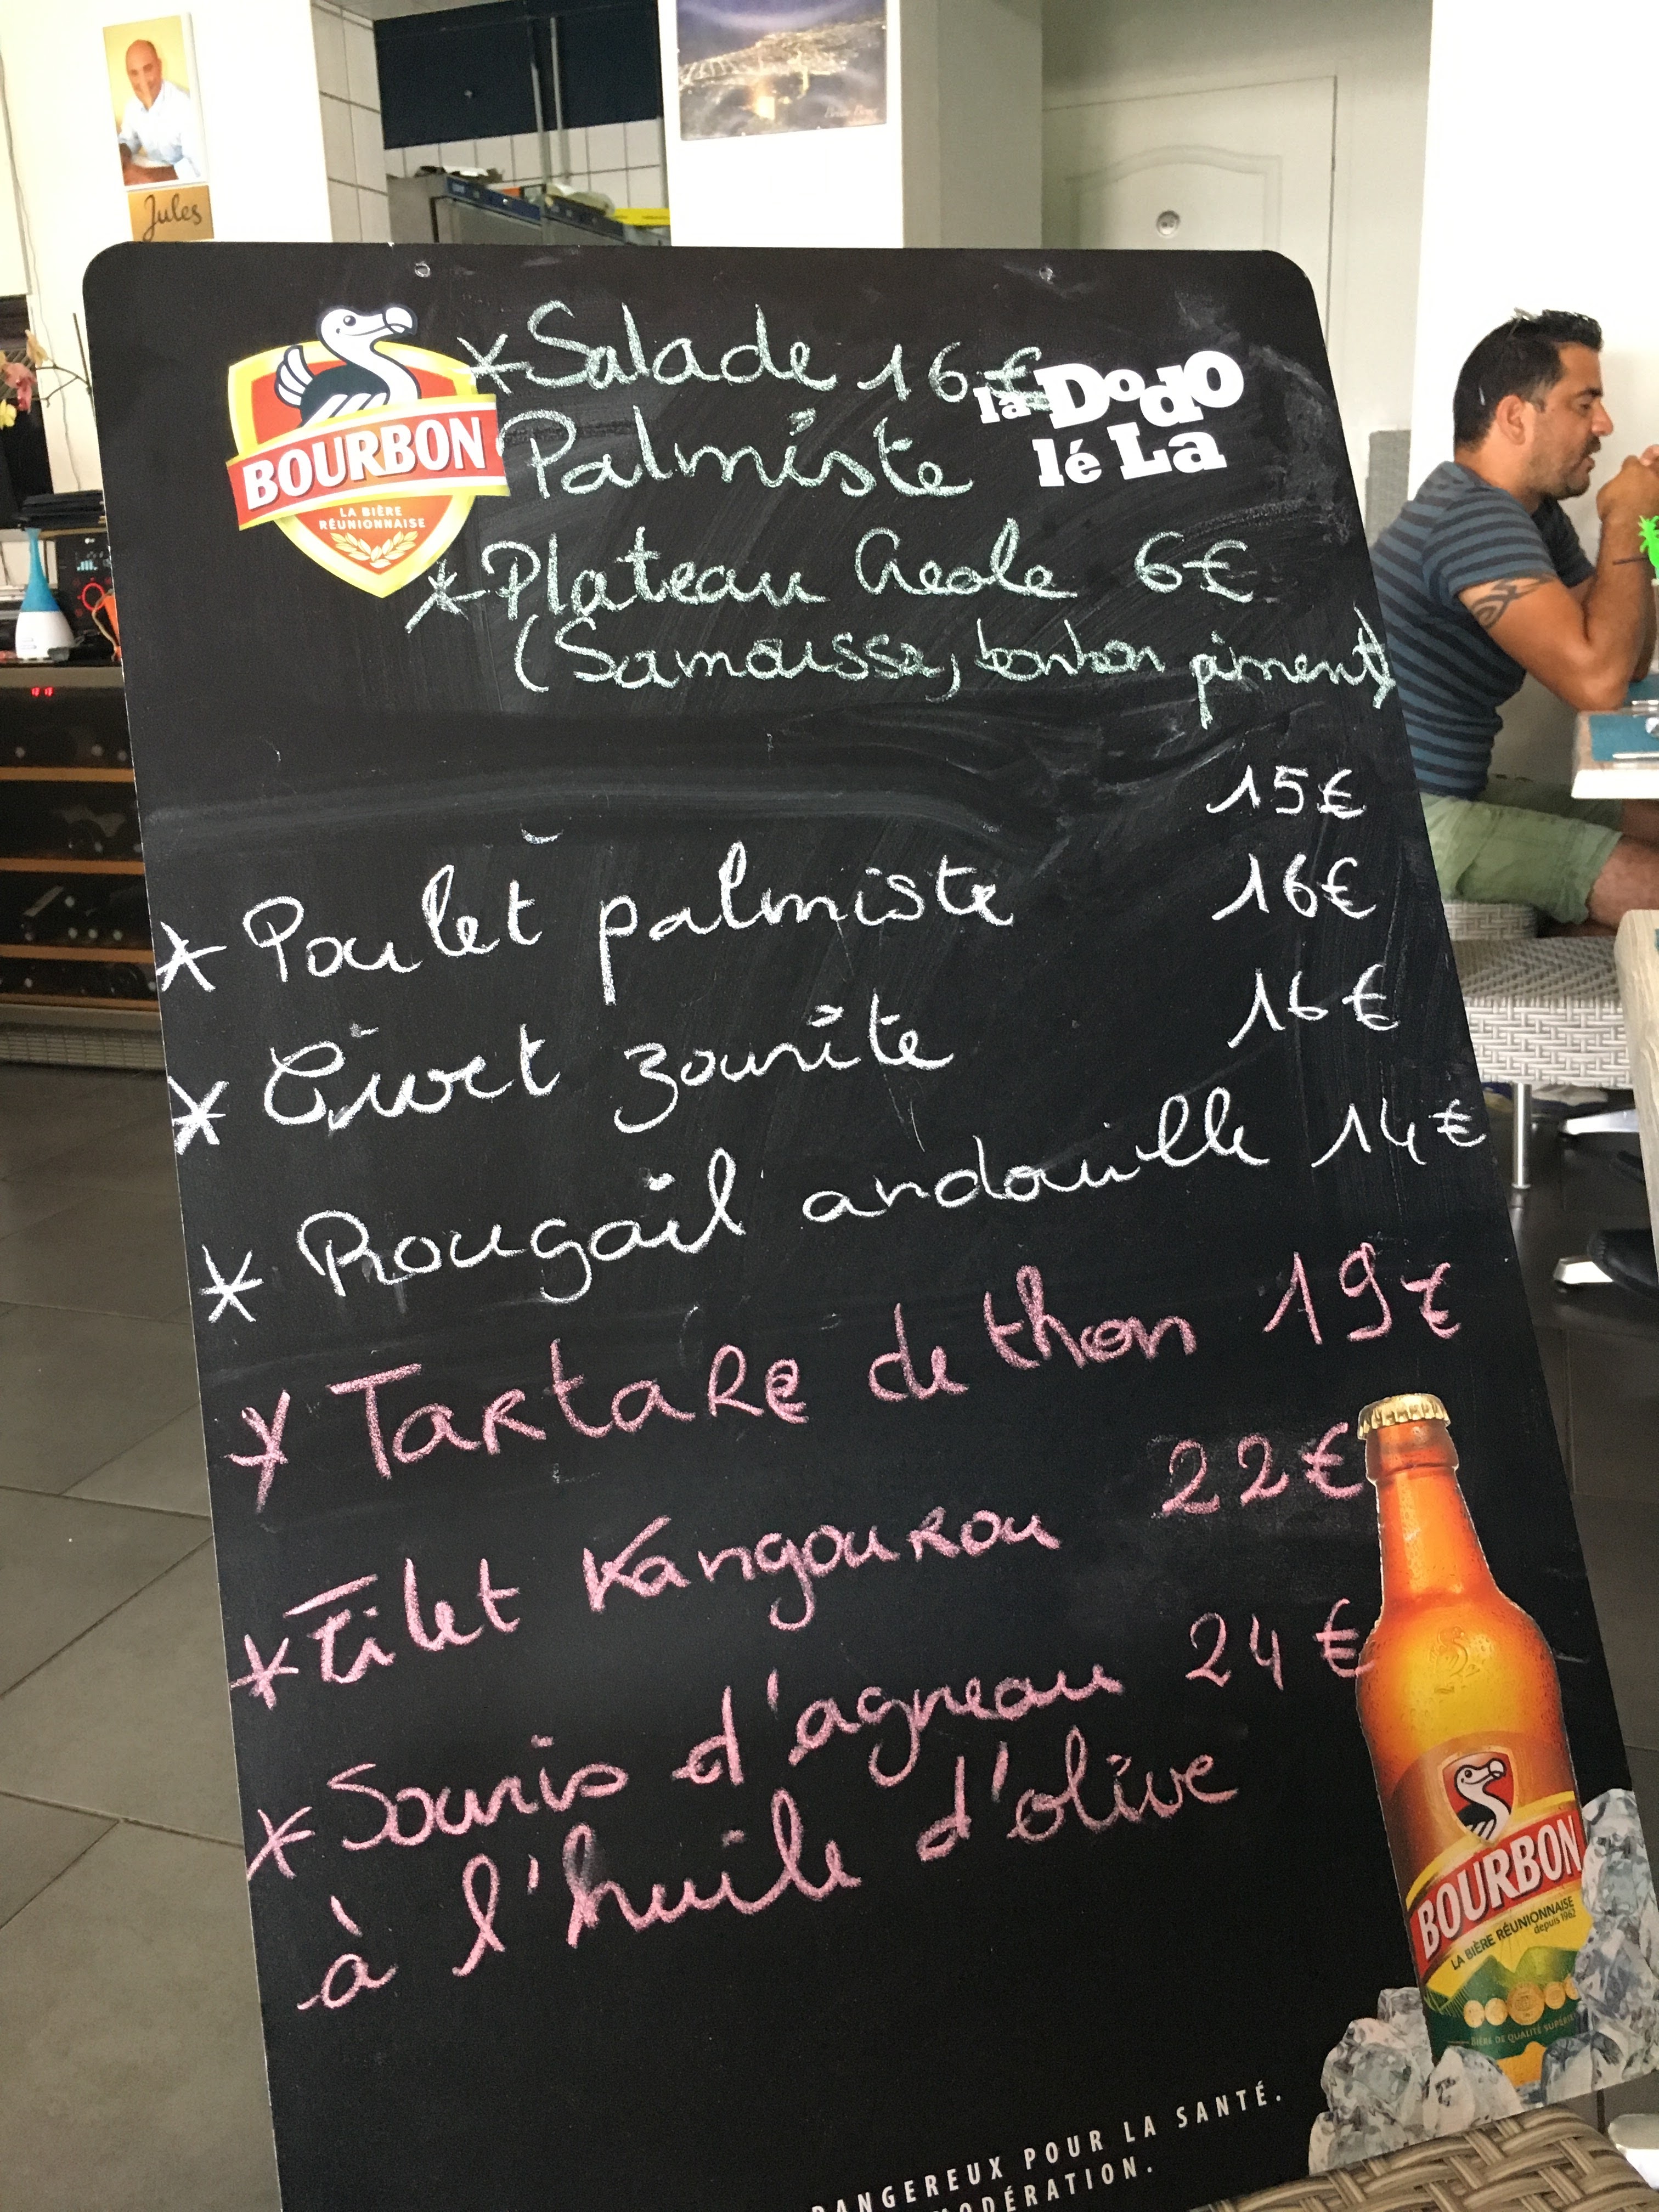 Jules
*Salade 16€
Palmiste
BOURBON
LA BIÈRE
RÉUNIONNAISE
la Dodo
lé La
*Plateau Creole 6€
(Samoussa, bonbon piment)
15€
* Poulet palmiste 16€
* Civet zourite 16€
* Rougail andouille 14€
* Tartare de thon 19€
* Filet Kangourou 22€
* Souris d'agneau 24€
à l'huile d'olive
BOURBON
LA BIÈRE RÉUNIONNAISE
depuis 1962
BIÈRE DE QUALITÉ SUPÉRIE
DANGEREUX POUR LA SANTÉ.
MODÉRATION.